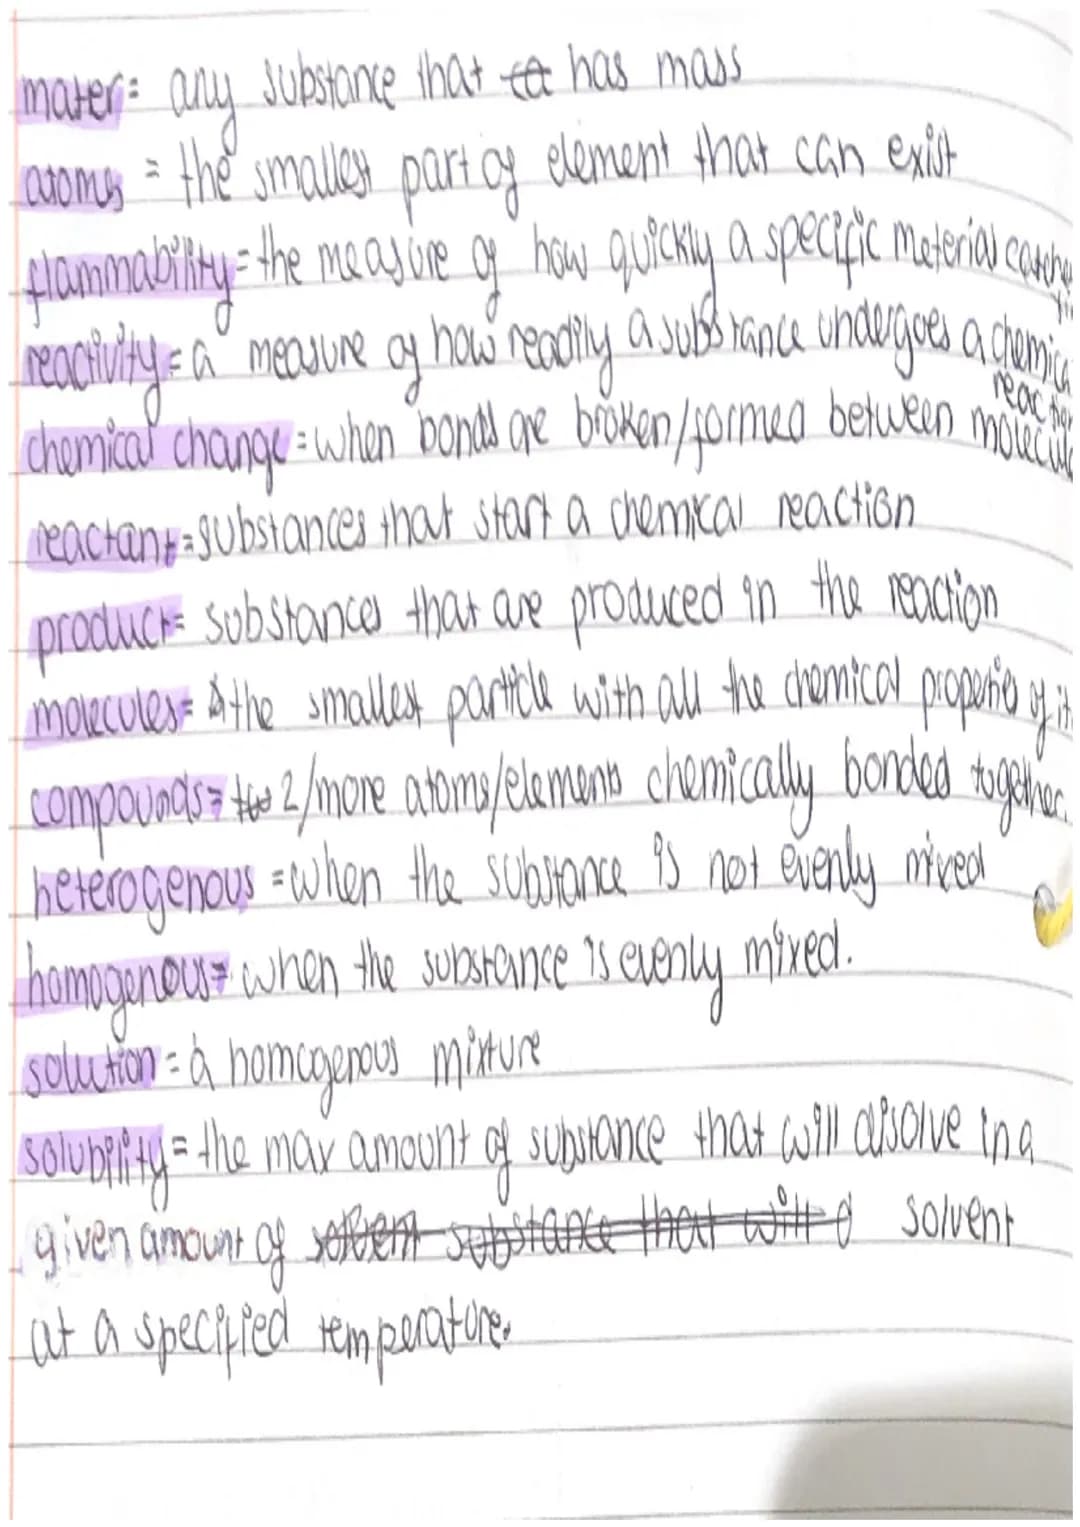 mater= any substance that has mass
atoms = the smallest part of element that can exist
flammability= the measure of how quickly a specific material catche
fi
reactivity= a measure of how readily a substance undergoes a chemica
reaction
chemical change = when bonds are broken/formed between molecul
reactant=substances that start a chemical reaction
product= substances that are produced in the reaction
molecules= the smallest particle with all the chemical properties of it
compounds= 2/more atoms/elements chemically bonded together.
heterogenous =when the substance is not evenly mixed
homogenous= when the substance is evenly mixed.
solution = a homogenous mixture
solubility= the max amount of substance that will disolve in a
given amount of solvent substance that will d solvent
at a specified temperature.